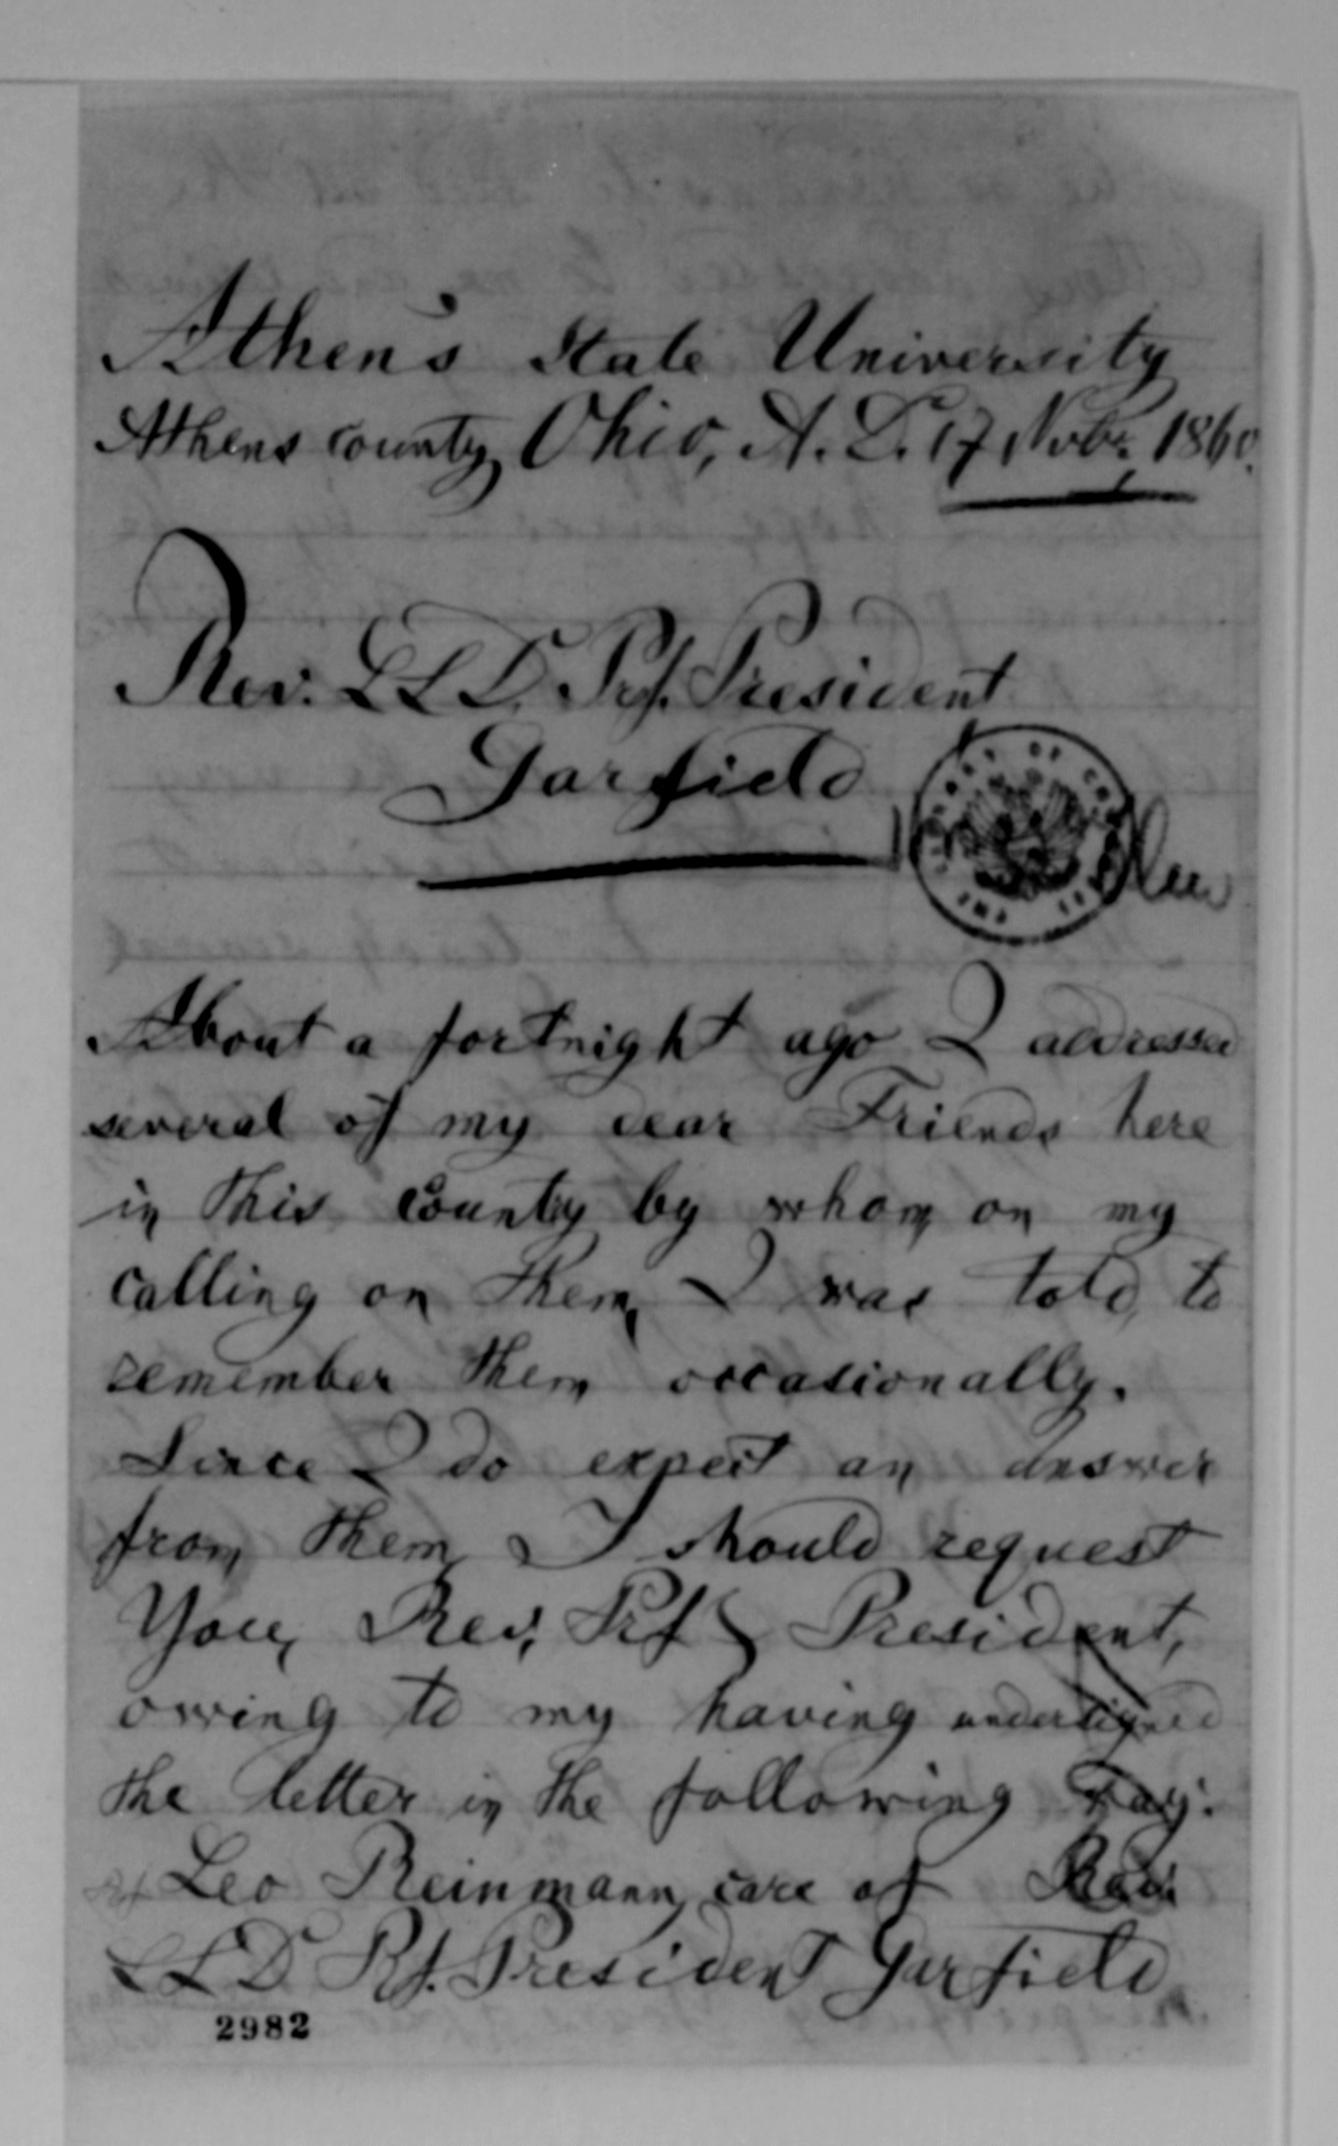 Athen's State University
Athens county, Ohio, A. D. 17 Nvbr. 1860.
Rev. LLD. Prf. President
Garfield
THE LIBRARY OF CONGRESS
About a fortnight ago I addressed
several of my dear Friends here
in this County by whom on my
calling on them, I was told to
remember them occasionally.
Since I do expect an answer
from them, I should request
You, Rev. Prf & President,
owing to my having undersigned
the letter in the following way:
Leo Reinmann, care of Rev.
LLD Prf. President Garfield
2982